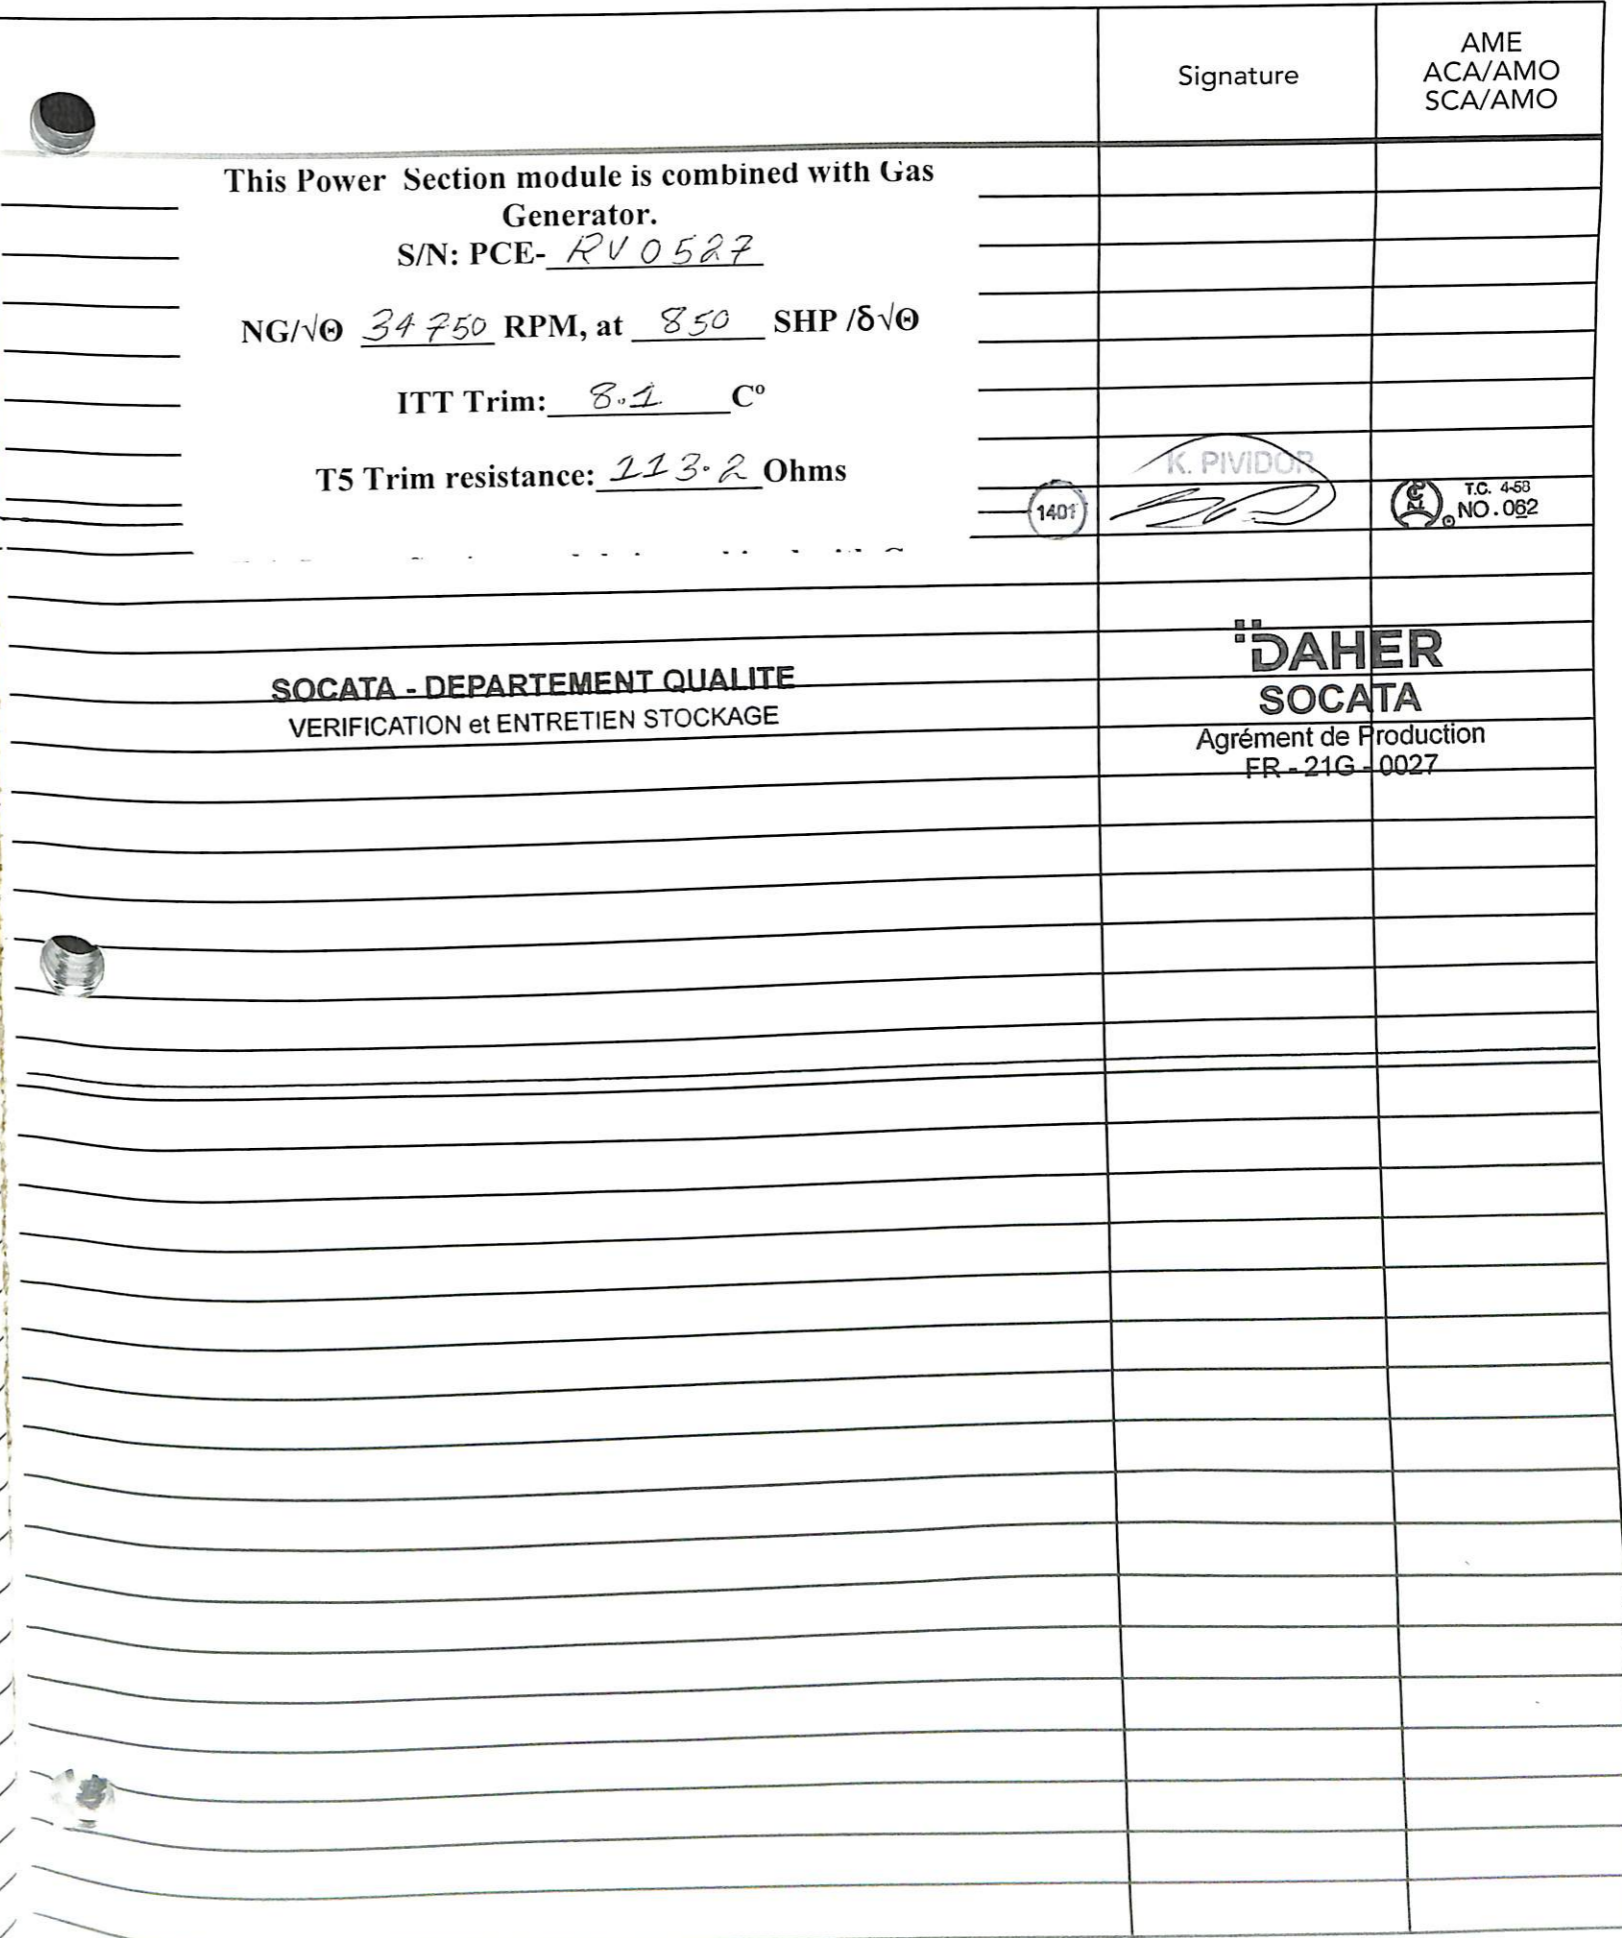 Signature
AME
ACA/AMO
SCA/AMO
This Power Section module is combined with Gas
Generator.
S/N: PCE- RV0527
NG/√Θ 34750 RPM, at 850 SHP /δ√Θ
ITT Trim: 8.1 Cº
T5 Trim resistance: 113.2 Ohms
1401
K. PIVIDOR
T.C. 4-58
NO. 062
SOCATA - DEPARTEMENT QUALITE
VERIFICATION et ENTRETIEN STOCKAGE
DAHER
SOCATA
Agrément de Production
FR - 21G - 0027